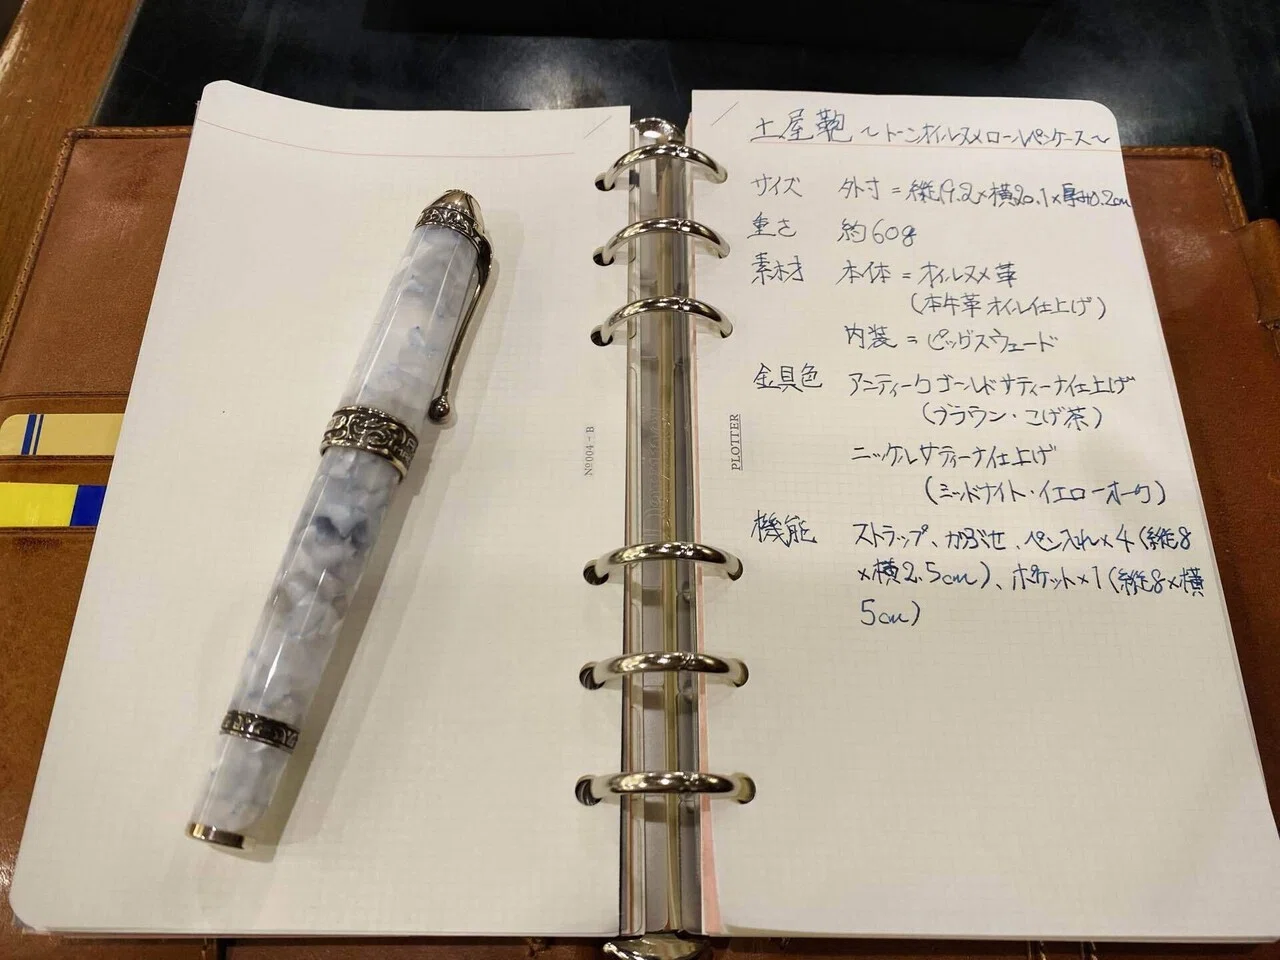 土屋鞄 〜トーンオイルヌメロールペンケース〜
サイズ 外寸=縦19.2×横20.1×厚み0.2cm
重さ 約60g
素材 本体=オイルヌメ革
(本牛革オイル仕上げ)
内装=ピッグスウェード
金具色 アンティークゴールドサティーナ仕上げ
(ブラウン・こげ茶)
ニッケルサティーナ仕上げ
(ミッドナイト・イエローオーク)
機能 ストラップ、かぶせ、ペン入れ×4(縦8
×横2.5cm)、ポケット×1(縦8×横
5cm)
Nº004-B
PLOTTER